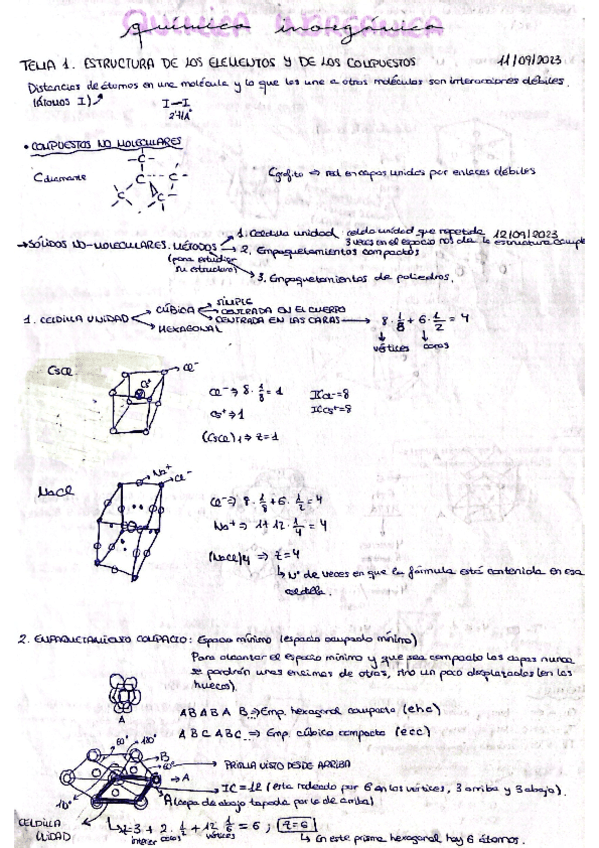 química inorgánica
TEMA 1. ESTRUCTURA DE LOS ELEMENTOS Y DE LOS COMPUESTOS 11/09/2023
Distancias de átomos en una molécula y lo que los une a otras moléculas son interacciones débiles.
(átomos I) I—I
2'71A°
• COMPUESTOS NO MOLECULARES
Cdiamante C C C C C Cgrafito ⇒ red en capas unidas por enlaces débiles
12/09/2023
→SÓLIDOS NO-MOLECULARES. MÉTODOS 1. Celdilla unidad: celda unidad que repetida
(para estudiar 3 veces en el espacio nos da la estructura
su estructura) 2. Empaquetamientos compactos
3. Empaquetamientos de poliedros.
1. CELDILLA UNIDAD CÚBICA SIMPLE
CENTRADA EN EL CUERPO
CENTRADA EN LAS CARAS → 8·1/8 + 6·1/2 = 4
HEXAGONAL vértices caras
CsCl Cl⁻
Cs⁺ Cl⁻ ⇒ 8·1/8 = 1 ICCl⁻=8
Cs⁺ ⇒ 1 ICCs⁺=8
(CsCl)1 ⇒ Z=1
NaCl Na⁺ Cl⁻
Cl⁻ ⇒ 8·1/8 + 6·1/2 = 4
Na⁺ ⇒ 1+12·1/4 = 4
(NaCl)4 ⇒ Z=4
↳ Nº de veces en que la fórmula está contenida en esa
celdilla.
2. EMPAQUETAMIENTO COMPACTO: Espacio mínimo (espacio ocupado mínimo)
Para alcanzar el espacio mínimo y que sea compacto las capas nunca
se pondrán unas encimas de otras, sino un poco desplazadas (en los
huecos).
A
A B A B A B ... ⇒ Emp. hexagonal compacto (ehc)
A B C A B C ... ⇒ Emp. cúbico compacto (ecc)
60° 120°
B → PRISMA VISTO DESDE ARRIBA
A
IC = 12 (esta rodeado por 6 en los vértices, 3 arriba y 3 abajo).
A (capa de abajo tapada por la de arriba)
CELDILLA
UNIDAD
Z=3 + 2·1/2 + 12·1/6 = 6 ; Z=6
interior caras vértices
↳ En este prisma hexagonal hay 6 átomos.